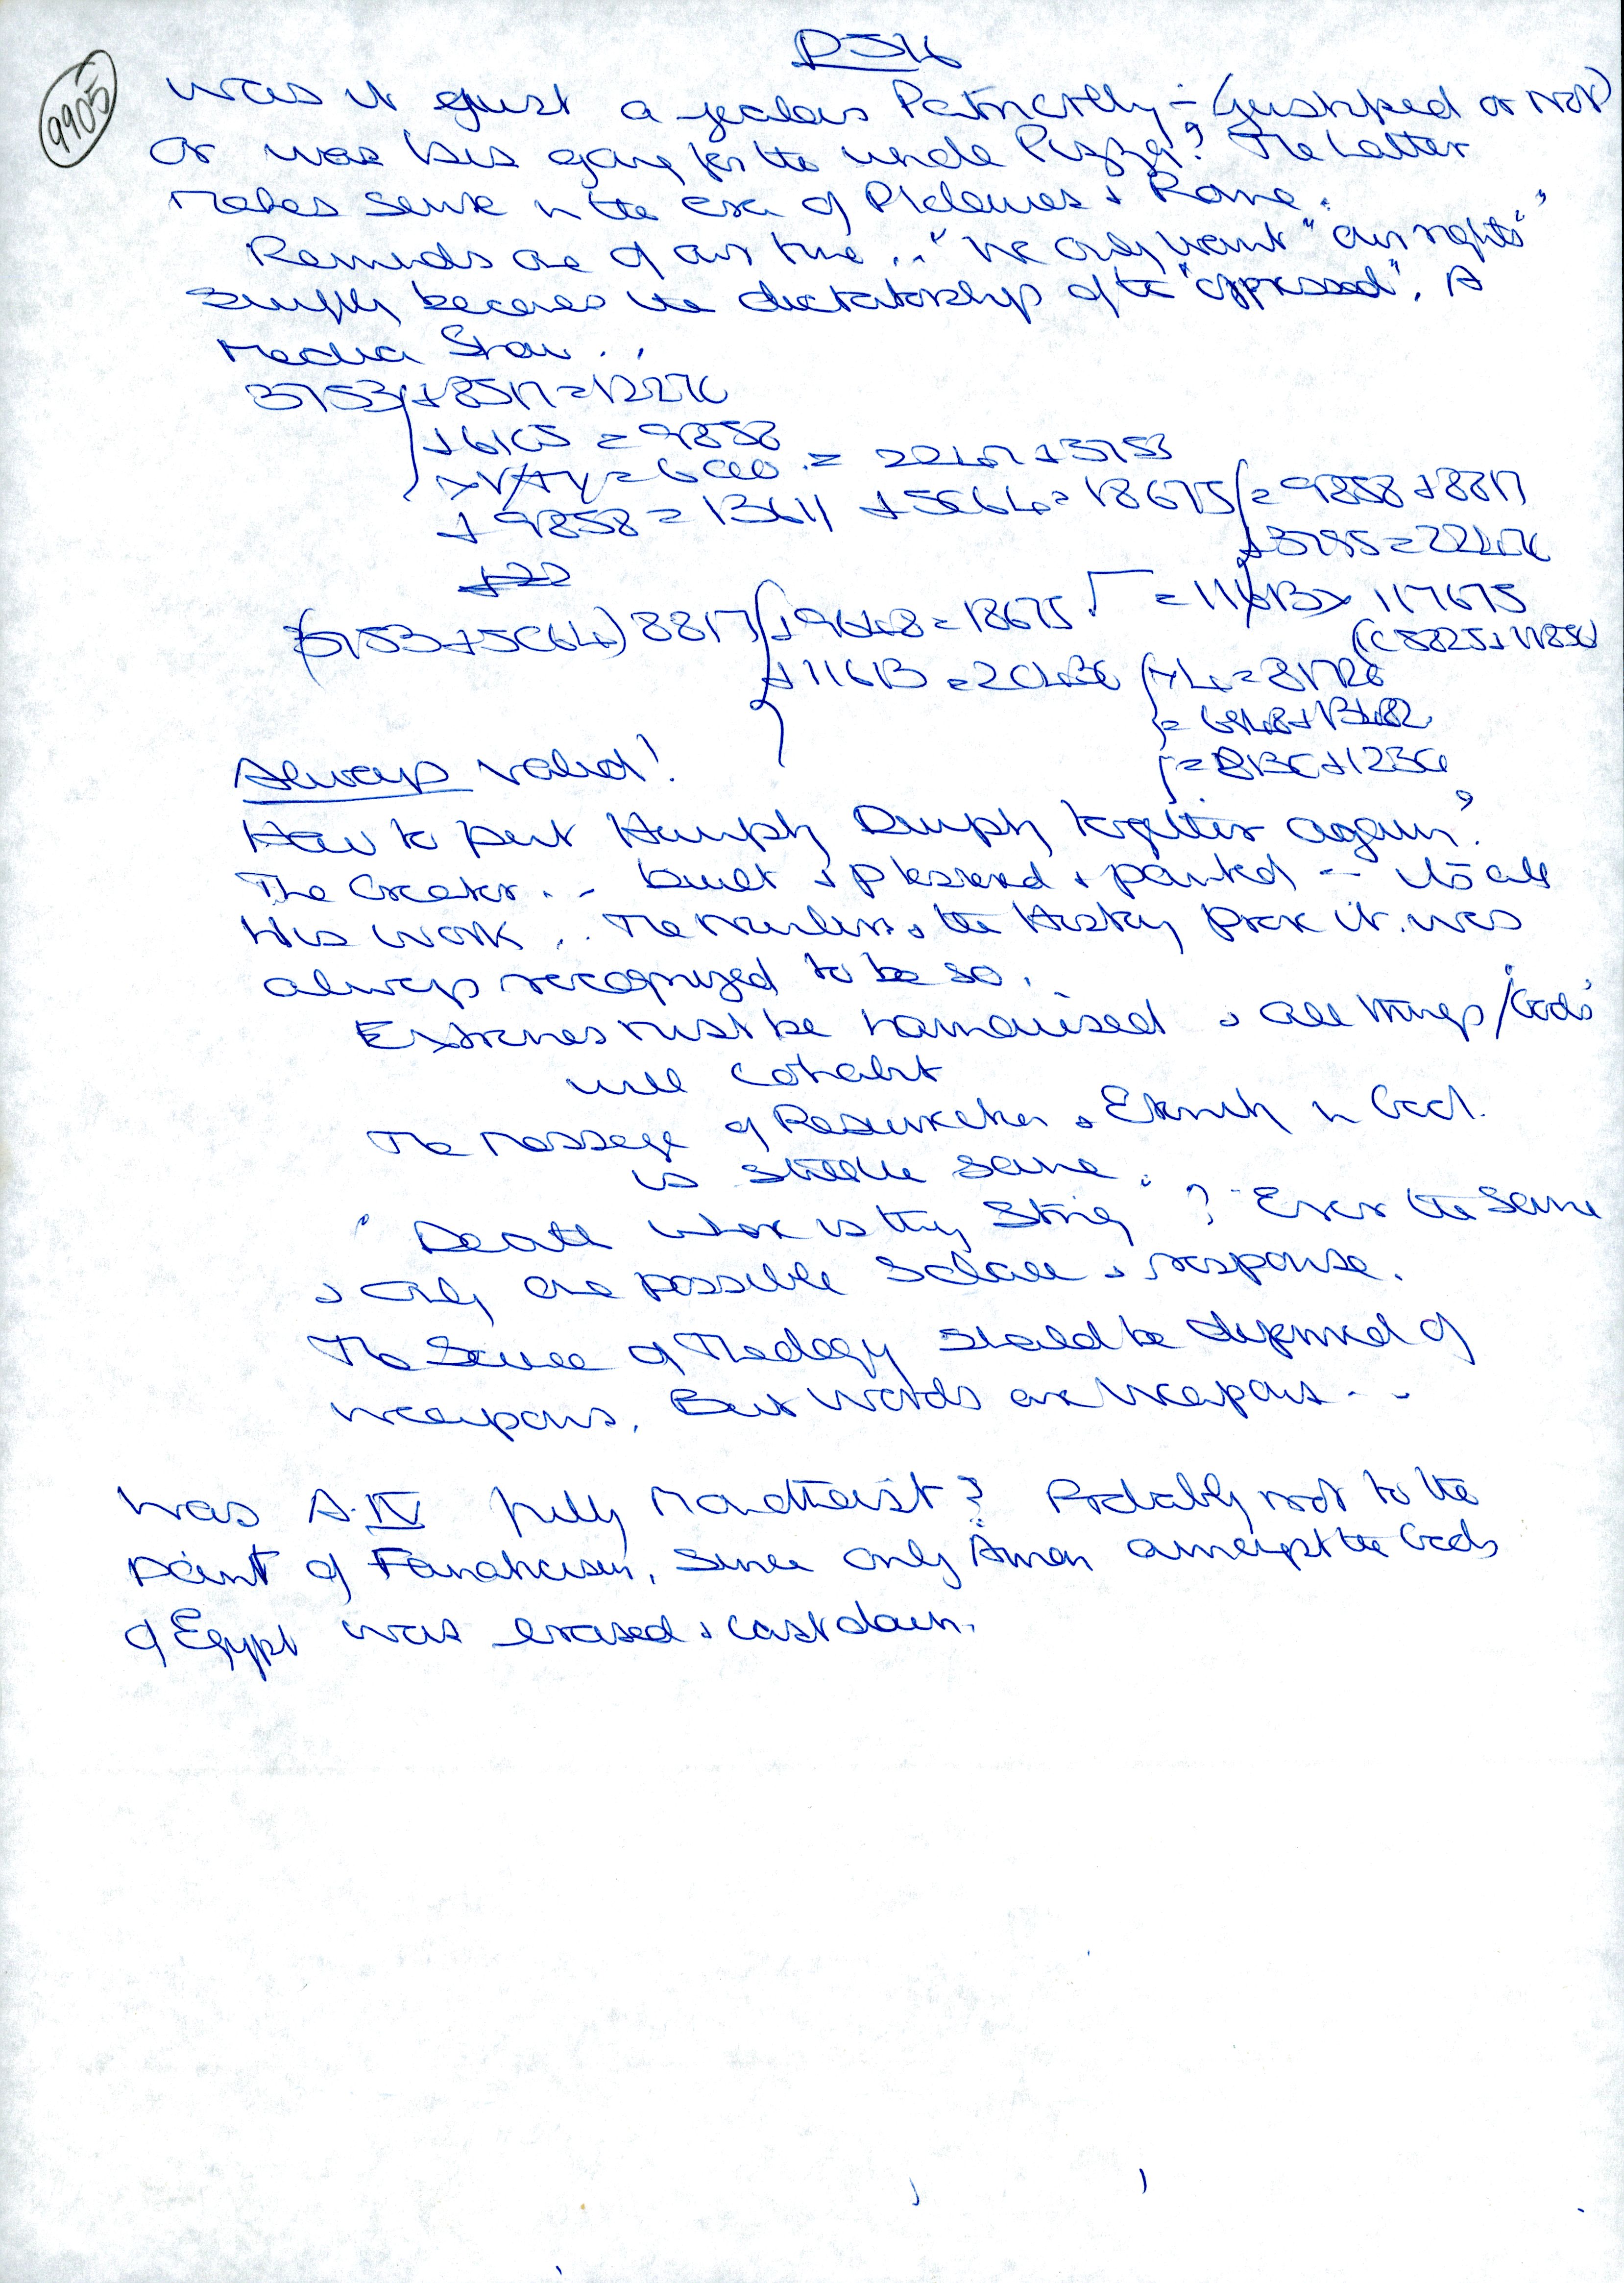 9905
Was it just a jealous Patriarchy - (justified or not)
Or was Isis going for the whole Pizza? The Latter
makes sense in the era of Ptolemies & Rome.
Reminds one of our time .. "We only want "our rights"
simply becomes the dictatorship of the "oppressed". A
Media Show ..
3753 + 8517 = 12270
+ 6105 = 9858
= 3753
+ 9858 = 13611 + 5064 = 18675 = 9858 + 8817
(3753 + 5064) 8817 = 18675
+ 11613 = 20430
Always valid!
How to put Humpty Dumpty together again?
The Creator .. built & plastered & painted -- its all
His work .. The Numbers & the History prove it was
always recognized to be so.
Extremes must be harmonised & all things/Gods
will cohabit
The Message of Resurrection & Eternity in God.
is still the same.
"Death where is thy Sting"? Ever the same
& only one possible Solace & response.
The Science of Theology should be deprived of
weapons. But words are weapons --
Was A.IV fully Monotheist? Probably not to the
point of Fanaticism, since only Amon amongst the Gods
of Egypt was erased & cast down.